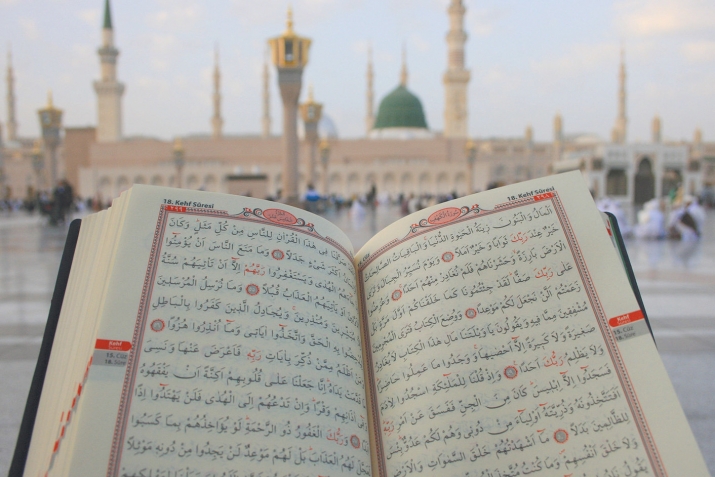 18. Kehf Sûresi
٢٩٨
اَلْمَالُ وَالْبَنُونَ زِينَةُ الْحَيٰوةِ الدُّنْيَا وَالْبَاقِيَاتُ الصَّالِحَاتُ
خَيْرٌ عِنْدَ رَبِّكَ ثَوَابًا وَخَيْرٌ اَمَلًا وَيَوْمَ نُسَيِّرُ الْجِبَالَ وَتَرَى
الْاَرْضَ بَارِزَةً وَحَشَرْنَاهُمْ فَلَمْ نُغَادِرْ مِنْهُمْ اَحَدًا وَعُرِضُوا
عَلٰى رَبِّكَ صَفًّا لَقَدْ جِئْتُمُونَا كَمَا خَلَقْنَاكُمْ اَوَّلَ مَرَّةٍ بَلْ
زَعَمْتُمْ اَلَّنْ نَجْعَلَ لَكُمْ مَوْعِدًا وَوُضِعَ الْكِتَابُ فَتَرَى الْمُجْرِمِينَ
مُشْفِقِينَ مِمَّا فِيهِ وَيَقُولُونَ يَا وَيْلَتَنَا مَالِ هٰذَا الْكِتَابِ لَا يُغَادِرُ
صَغِيرَةً وَلَا كَبِيرَةً اِلَّا اَحْصٰيهَا وَوَجَدُوا مَا عَمِلُوا حَاضِرًا
وَلَا يَظْلِمُ رَبُّكَ اَحَدًا وَاِذْ قُلْنَا لِلْمَلٰئِكَةِ اسْجُدُوا لِاٰدَمَ
فَسَجَدُوا اِلَّا اِبْلِيسَ كَانَ مِنَ الْجِنِّ فَفَسَقَ عَنْ اَمْرِ رَبِّهِ
اَفَتَتَّخِذُونَهُ وَذُرِّيَّتَهُ اَوْلِيَاءَ مِنْ دُونِي وَهُمْ لَكُمْ عَدُوٌّ بِئْسَ
لِلظَّالِمِينَ بَدَلًا مَا اَشْهَدْتُهُمْ خَلْقَ السَّمٰوَاتِ وَالْاَرْضِ
وَلَا خَلْقَ اَنْفُسِهِمْ وَمَا كُنْتُ مُتَّخِذَ
Kehf
18. Sûre
18. Kehf Sûresi
٢٩٩
فِي هٰذَا الْقُرْاٰنِ لِلنَّاسِ مِنْ كُلِّ مَثَلٍ وَكَانَ
اَكْثَرَ شَيْءٍ جَدَلًا وَمَا مَنَعَ النَّاسَ اَنْ يُؤْمِنُوا
الْهُدٰى وَيَسْتَغْفِرُوا رَبَّهُمْ اِلَّا اَنْ تَأْتِيَهُمْ سُنَّةُ
اَوْ يَأْتِيَهُمُ الْعَذَابُ قُبُلًا وَمَا نُرْسِلُ الْمُرْسَلِينَ
مُبَشِّرِينَ وَمُنْذِرِينَ وَيُجَادِلُ الَّذِينَ كَفَرُوا بِالْبَاطِلِ
لِيُدْحِضُوا بِهِ الْحَقَّ وَاتَّخَذُوا اٰيَاتِي وَمَا اُنْذِرُوا هُزُوًا
اَظْلَمُ مِمَّنْ ذُكِّرَ بِاٰيَاتِ رَبِّهِ فَاَعْرَضَ عَنْهَا وَنَسِيَ
قَدَّمَتْ يَدَاهُ اِنَّا جَعَلْنَا عَلٰى قُلُوبِهِمْ اَكِنَّةً اَنْ يَفْقَهُوهُ
اٰذَانِهِمْ وَقْرًا وَاِنْ تَدْعُهُمْ اِلَى الْهُدٰى فَلَنْ يَهْتَدُوا اِذًا
وَرَبُّكَ الْغَفُورُ ذُو الرَّحْمَةِ لَوْ يُؤَاخِذُهُمْ بِمَا كَسَبُوا
لَهُمُ الْعَذَابَ بَلْ لَهُمْ مَوْعِدٌ لَنْ يَجِدُوا مِنْ دُونِهِ مَوْئِلًا
Kehf
15. Cüz
18. Sûre